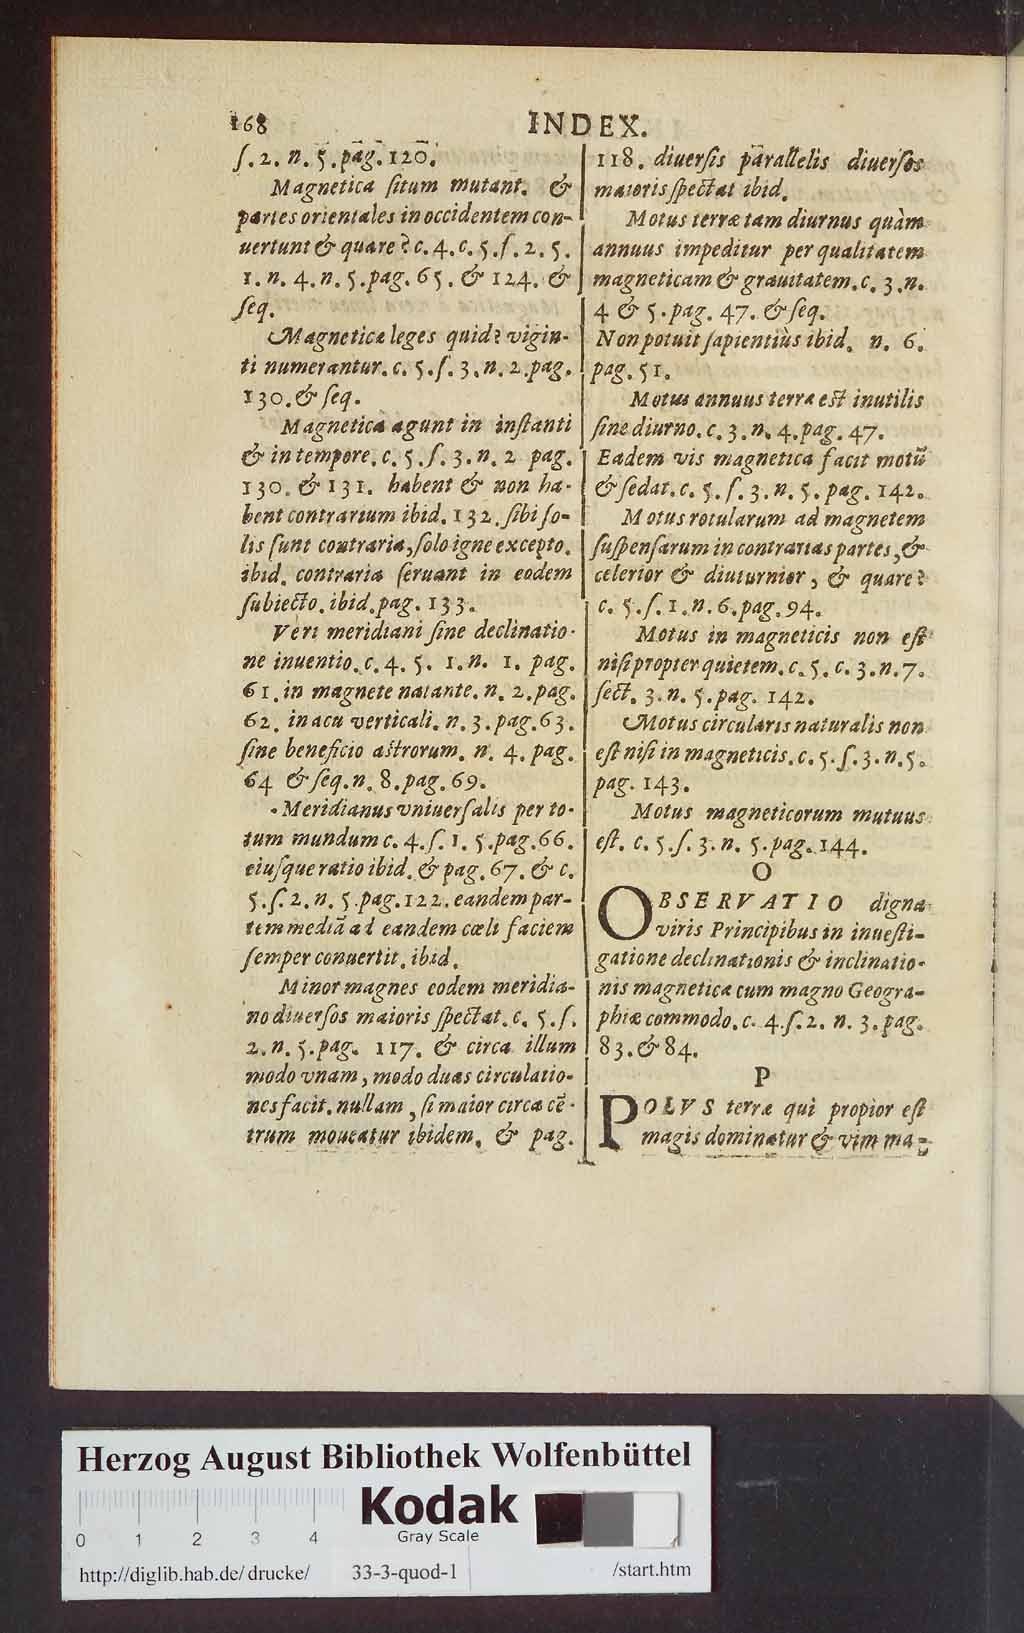 168
INDEX.
ſ. 2. n. 5. pag. 120.
Magnetica ſitum mutant. &
partes orientales in occidentem con-
uertunt & quare? c. 4. c. 5. ſ. 2. 5.
1. n. 4. n. 5. pag. 65. & 124. &
ſeq.
Magneticæ leges quid? vigin-
ti numerantur. c. 5. ſ. 3. n. 2. pag.
130. & ſeq.
Magnetica agunt in inſtanti
& in tempore. c. 5. ſ. 3. n. 2 pag.
130. & 131. habent & non ha-
bent contrarium ibid. 132. ſibi ſo-
lis ſunt contraria, ſolo igne excepto.
ibid. contraria ſeruant in eodem
ſubiecto. ibid. pag. 133.
Veri meridiani ſine declinatio-
ne inuentio. c. 4. 5. 1. n. 1. pag.
61. in magnete natante. n. 2. pag.
62. in acu verticali. n. 3. pag. 63.
ſine beneficio aſtrorum. n. 4. pag.
64 & ſeq. n. 8. pag. 69.
Meridianus vniuerſalis per to-
tum mundum c. 4. ſ. 1. 5. pag. 66.
eiuſque ratio ibid. & pag. 67. & c.
5. ſ. 2. n. 5. pag. 122. eandem par-
tem mediã ad eandem cœli faciem
ſemper conuertit. ibid.
Minor magnes eodem meridia-
no diuerſos maioris ſpectat. c. 5. ſ.
2. n. 5. pag. 117. & circa illum
modo vnam, modo duas circulatio-
nes facit. nullam, ſi maior circa cẽ-
trum moueatur ibidem. & pag.
118. diuerſis parallelis diuerſos
maioris ſpectat ibid.
Motus terræ tam diurnus quàm
annuus impeditur per qualitatem
magneticam & grauitatem. c. 3. n.
4 & 5. pag. 47. & ſeq.
Non potuit ſapientiùs ibid. n. 6.
pag. 51.
Motus annuus terræ eſt inutilis
ſine diurno. c. 3. n. 4. pag. 47.
Eadem vis magnetica facit motũ
& ſedat. c. 5. ſ. 3. n. 5. pag. 142.
Motus rotularum ad magnetem
ſuſpenſarum in contrarias partes, &
celerior & diuturnior, & quare?
c. 5. ſ. 1. n. 6. pag. 94.
Motus in magneticis non eſt
niſi propter quietem. c. 5. c. 3. n. 7.
ſect. 3. n. 5. pag. 142.
Motus circularis naturalis non
eſt niſi in magneticis. c. 5. ſ. 3. n. 5.
pag. 143.
Motus magneticorum mutuus
eſt. c. 5. ſ. 3. n. 5. pag. 144.
O
OBSERVATIO digna
viris Principibus in inueſti-
gatione declinationis & inclinatio-
nis magneticæ cum magno Geogra-
phiæ commodo. c. 4. ſ. 2. n. 3. pag.
83. & 84.
P
POLVS terræ qui propior eſt
magis dominatur & vim ma-
Herzog August Bibliothek Wolfenbüttel
Kodak
Gray Scale
0 1 2 3 4
http://diglib.hab.de/drucke/ 33-3-quod-1 /start.htm